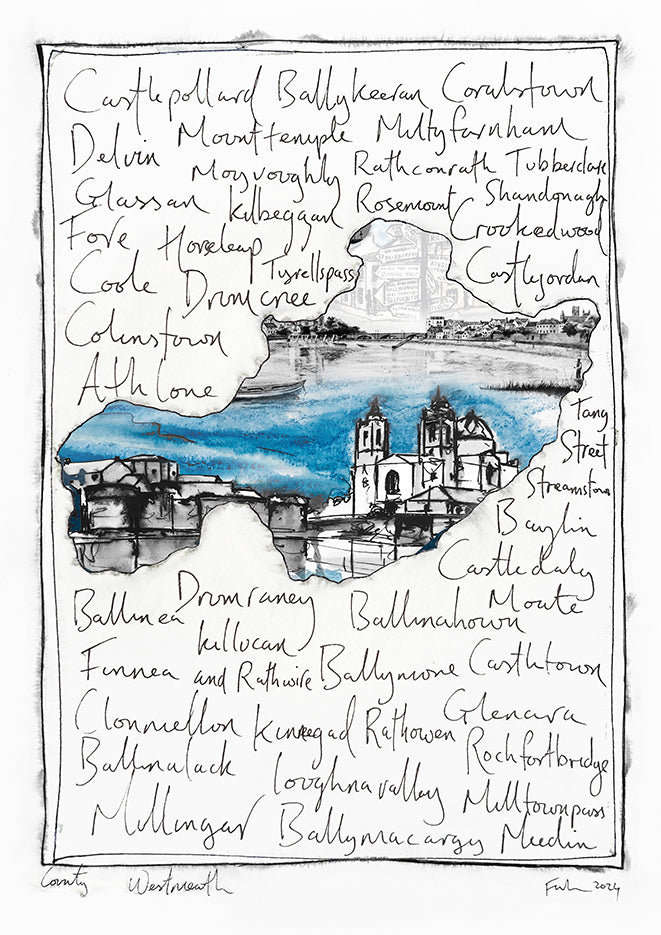 Castlepollard Ballykeeran Coralstown
Delvin Mounttemple Multyfarnham
Moyvoughly Rathconrath Tubberclare
Glassan Kilbeggan Rosemount Shandonagh
Fore Horseleap Crookedwood
Coole Drumcree Tyrrellspass Castlejordan
Colinstown
Athlone
Tang
Street
Streamstown
Baylin
Castledaly
Ballinea Drumraney Ballinahown Moate
Killucan
Finnea and Rathwire Ballymore Castletown
Clonmellon Kinnegad Rathowen Glenara
Ballinalack Rochfortbridge
Loughnavalley Milltownpass
Mullingar Ballymacargy Meedin
County Westmeath 2024